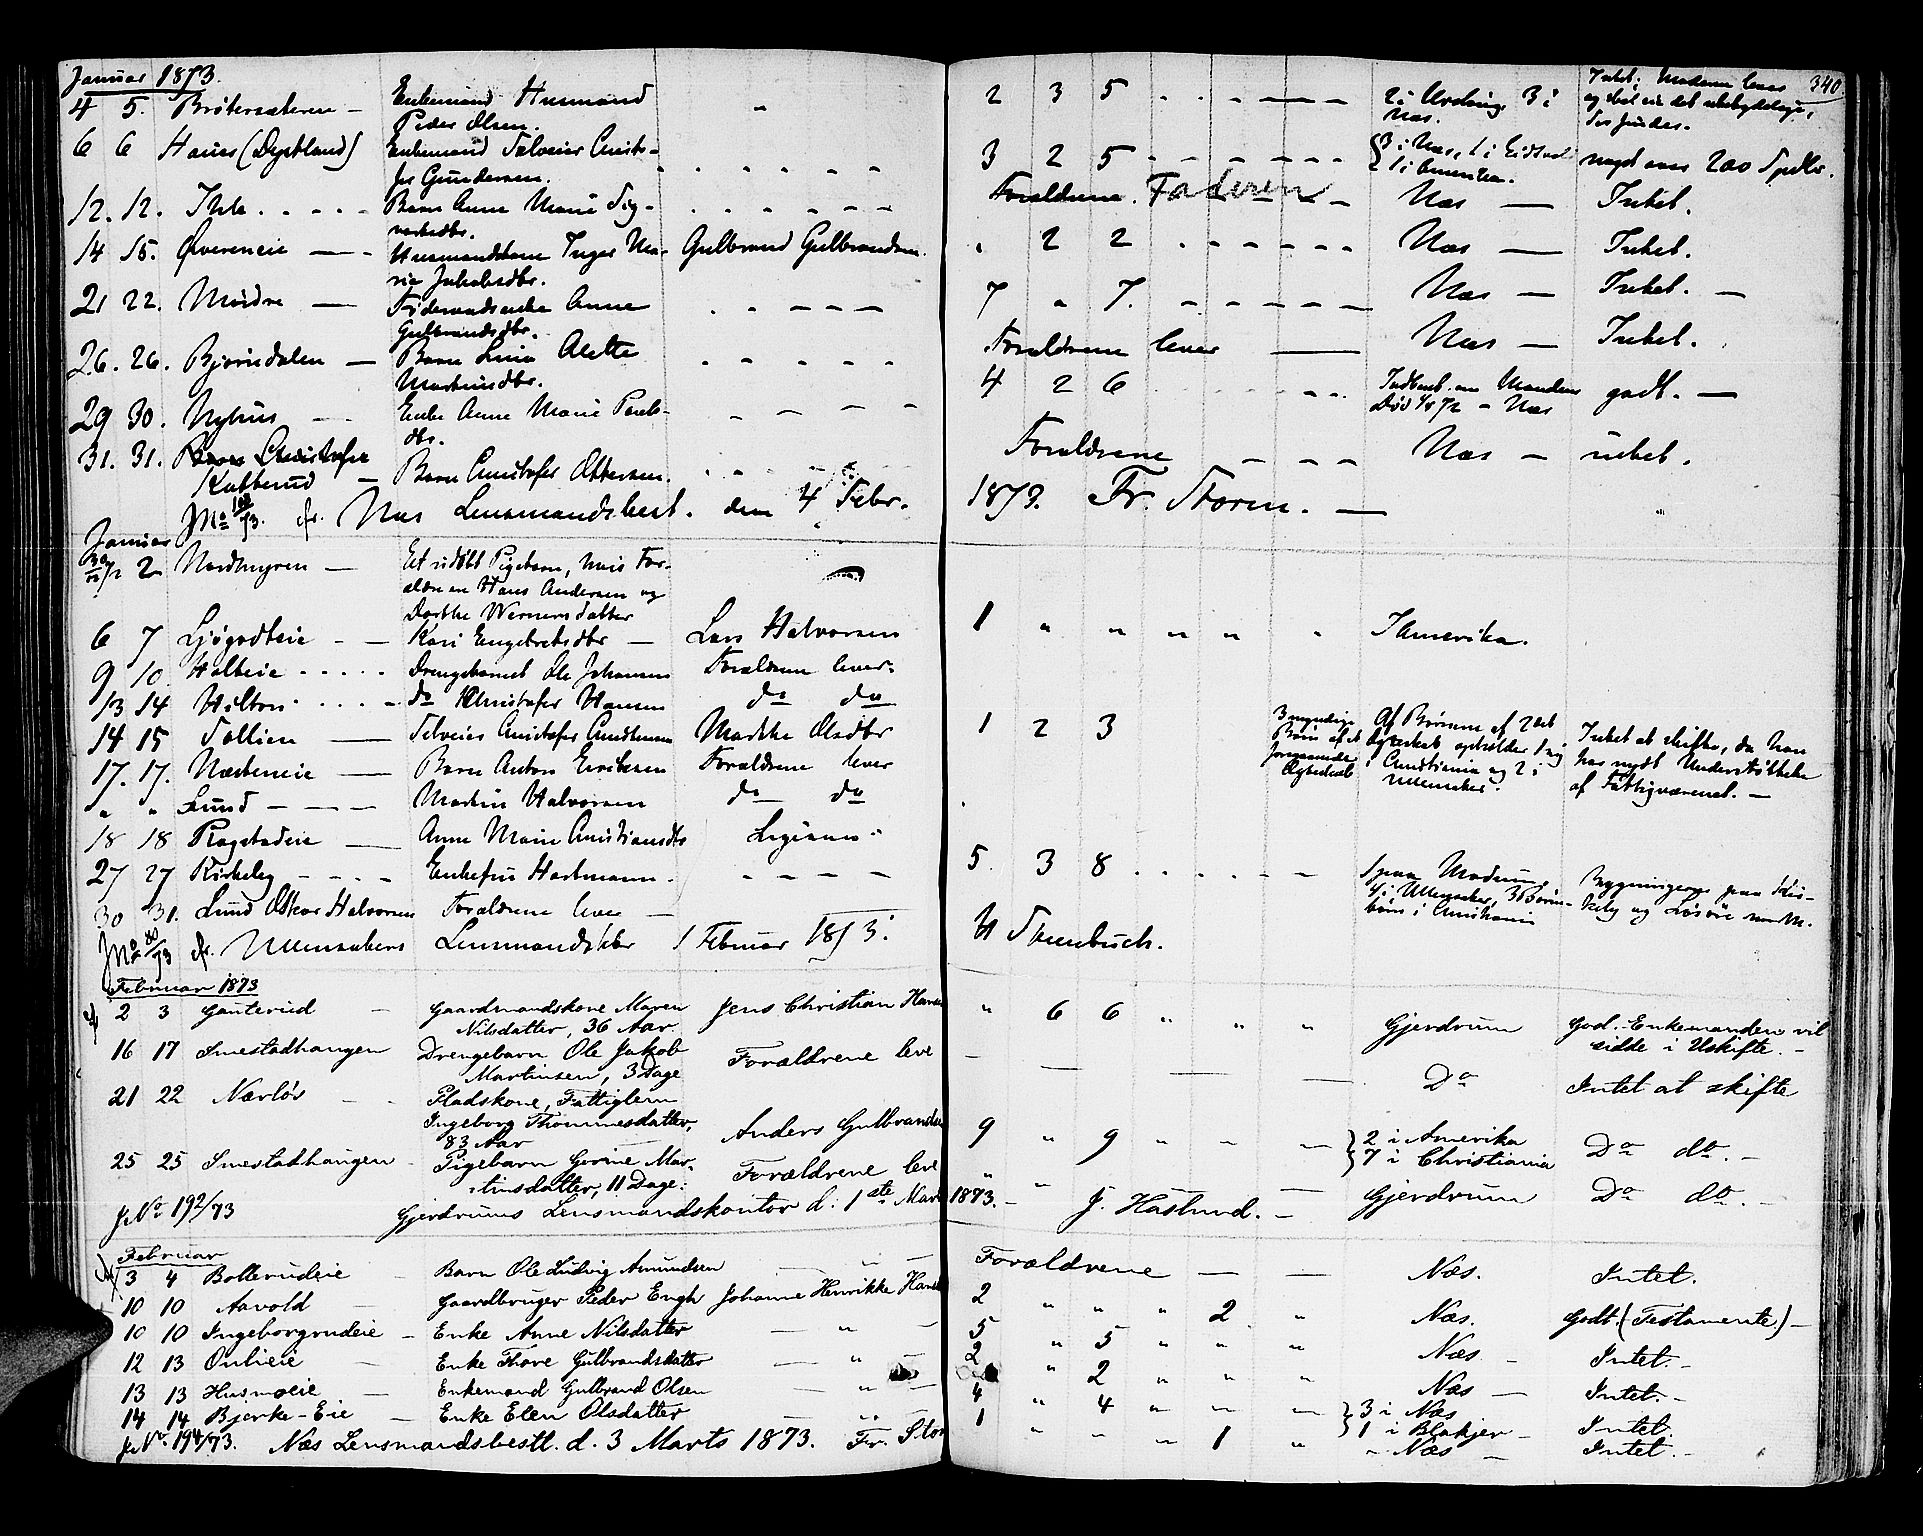 340
Januar 1873.
4 5. Brötersæteren — Enkemand Husmand " 2 3 5 2 i Urding, 3 i Intet; Moderen lever
Peder Olsen. Næs. og det ubetydelige,
der findes.
6 6 Hauer (Dystland) Enkemand 3 2 5 3 i Næs, 1 i Eidsvold noget over 200 Spdlr.
Gundersen. 1 i Amerika.
12. 12. Ihle Barn Anne Marie Forældrene. Faderen Næs — Intet.
14 15. Øvereneie — Husmandskone Inger Ma- Gulbrand Gulbrandsen. " 2 2 Næs — Intet.
rie Jakobsdtr.
21 22. Moidre — Anne 7 " 7. Næs — Intet. —
Gulbrandsdtr.
26. 26. Bjørndalen — Barn Lina Alette Forældrene lever — Næs — Intet.
Martinsdtr.
29 30. Nyhus Enke Anne Marie 4 2 6 godt. —
dtr. Død Næs
31. 31. Barn Christofer Forældrene Næs — intet.
Kulterud — Barn Christofer Ottersen.
fr. Næs Lensmandsbest. den 4 Febr. 1873. Fr. Storm. —
Januar
2 Nordmyren — Et udöbt Pigebarn, hvis For-
ældre er Hans Andersen og
Dorthe Wernersdatter
6 7 Ljøgodteie — Kari Engebretsdtr — Lars Halvorsen 1 " " " " " I Amerika.
9 10. Holteie Drengebarnet Ole Johansen Forældrene lever.
13 14 Hilton do Christofer Hansen do do
14 15 Tollien — Christofer Marthe Olsdtr 1 2 3 3 myndige Af Börnene af 2det Intet at skifte, da han
Börn af 1 Ægteskab opholder 1 sig har nydt Understöttelse
Ægteskab i Christiania og 2 i af Fattigvæsenet. —
Ullensaker.
17. 17. Næsteneie — Barn Anton Eriksen Forældrene lever
" " Lund — Martin Halvorsen do do
18 18 Ragstadeie — Anne Marie Christiansdtr
27 27 Kirkeby Enkefru Hartmann. 5 3 8 1 paa Modum, Bygningerne paa Kir-
4 i Ullensaker, 3 keby og Lösöre
i Christiania
30 31. Lund Oskar Halvorsen Forældrene lever —
fr. Ullensakers Lensmandsktr 1 Februar 1873.
Februar 1873
2 3 Gauterud Gaardmandskone Maren Jens Christian Hansen " 6 6 " " " Gjerdrum God. Enkemanden vil
Nilsdatter, 36 Aar. sidde i Uskifte. —
16 17 Smestadhaugen Drengebarn Ole Jakob Forældrene leve — — — — Do Intet at skifte
Martinsen, 3 Dage
21 22 Nærlös Pladskone, Fattiglem
Ingeborg Thommesdatter, Anders Gulbrandsen 9 " 9 " " — 2 i Amerika Do do. —
83 Aar 7 i Christiania
25 25 Smestadhaugen Pigebarn Gerine Mar- Forældrene leve " " Gjerdrum Do do. —
tinsdatter, 11 Dage:
JNo 192/73 Gjerdrums Lensmandskontor d. 1ste Marts 1873. — J. Haslund. —
Februar
3 4 Bollerudeie Barn Ole Ludvig Amundsen — " — Forældrene — — Næs. Intet.
10 10 Aavold Gaardbruger Peder Engh Johanne Henrikke Hans 2 " " " 2 " Næs. Godt. (Testamente.) —
10 10 Ingeborgrudeie — Enke Anne Nilsdatter — " — 5 " 5 " " " Næs — Intet. —
12 13 Onlieie Enke Thore Gulbrandsdatter — " — 2 " 2 " " " Næs — Intet. —
13 13 Husmoeie — Enkemand Gulbrand Olsen — " — 4 " 4 " " — 3 i Næs Intet.
1 i Blakjer —
14 14 Bjerke-Eie — Enke Elen Olsdatter — " — 1 " " " 1 " " Næs — Intet. —
JNo. 194/73. Næs Lensmandsbestl. d. 3 Marts 1873. Fr. Stor